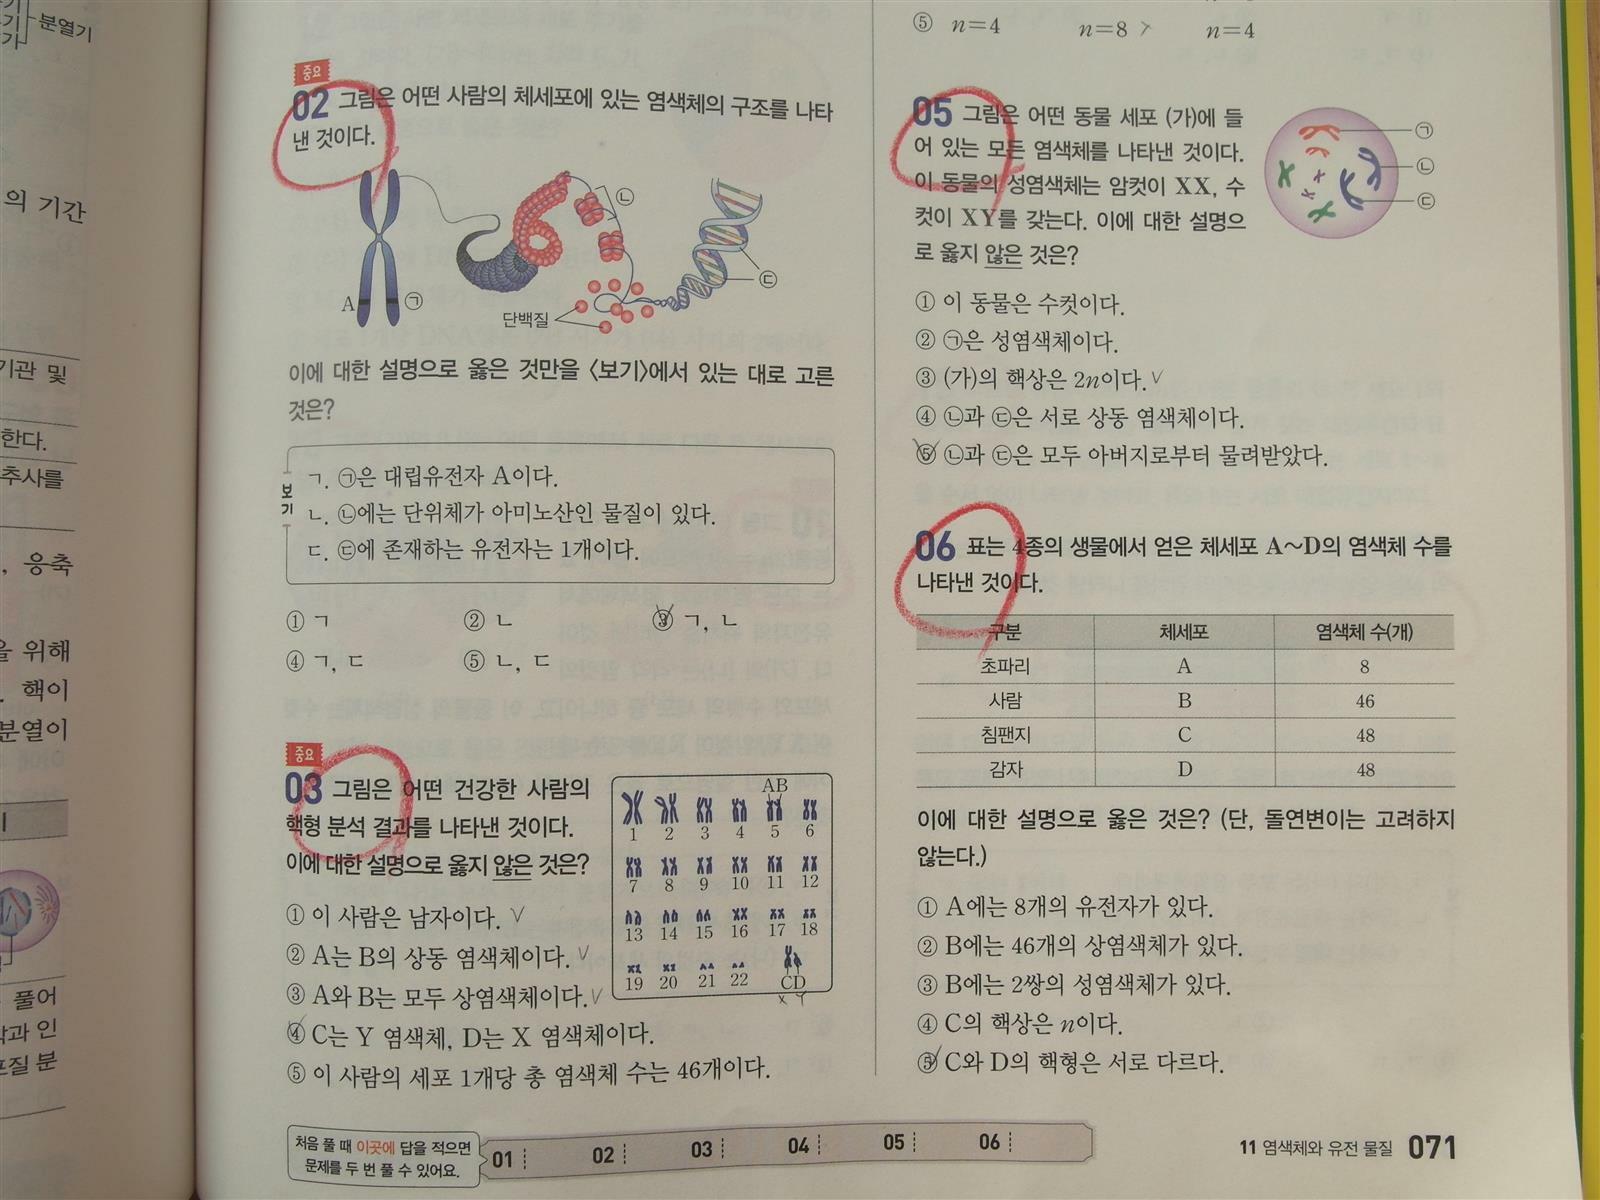 분열기
의 기간
기관 및
한다.
추사를
, 응축
을 위해
. 핵이
분열이
풀어
학과 인
포질 분
중요
02 그림은 어떤 사람의 체세포에 있는 염색체의 구조를 나타
낸 것이다.
A
㉠
㉡
㉢
단백질
이에 대한 설명으로 옳은 것만을 <보기>에서 있는 대로 고른
것은?
보기
ㄱ. ㉠은 대립유전자 A이다.
ㄴ. ㉡에는 단위체가 아미노산인 물질이 있다.
ㄷ. ㉢에 존재하는 유전자는 1개이다.
① ㄱ ② ㄴ ③ ㄱ, ㄴ
④ ㄱ, ㄷ ⑤ ㄴ, ㄷ
중요
03 그림은 어떤 건강한 사람의
핵형 분석 결과를 나타낸 것이다.
이에 대한 설명으로 옳지 않은 것은?
AB
1 2 3 4 5 6
7 8 9 10 11 12
13 14 15 16 17 18
19 20 21 22 CD
X Y
① 이 사람은 남자이다.
② A는 B의 상동 염색체이다.
③ A와 B는 모두 상염색체이다.
④ C는 Y 염색체, D는 X 염색체이다.
⑤ 이 사람의 세포 1개당 총 염색체 수는 46개이다.
처음 풀 때 이곳에 답을 적으면
문제를 두 번 풀 수 있어요.
01 02 03 04 05 06
⑤ n=4 n=8 n=4
05 그림은 어떤 동물 세포 (가)에 들
어 있는 모든 염색체를 나타낸 것이다.
이 동물의 성염색체는 암컷이 XX, 수
컷이 XY를 갖는다. 이에 대한 설명으
로 옳지 않은 것은?
㉠
㉡
㉢
① 이 동물은 수컷이다.
② ㉠은 성염색체이다.
③ (가)의 핵상은 2n이다.
④ ㉡과 ㉢은 서로 상동 염색체이다.
⑤ ㉡과 ㉢은 모두 아버지로부터 물려받았다.
06 표는 4종의 생물에서 얻은 체세포 A~D의 염색체 수를
나타낸 것이다.
구분 체세포 염색체 수(개)
초파리 A 8
사람 B 46
침팬지 C 48
감자 D 48
이에 대한 설명으로 옳은 것은? (단, 돌연변이는 고려하지
않는다.)
① A에는 8개의 유전자가 있다.
② B에는 46개의 상염색체가 있다.
③ B에는 2쌍의 성염색체가 있다.
④ C의 핵상은 n이다.
⑤ C와 D의 핵형은 서로 다르다.
11 염색체와 유전 물질 071